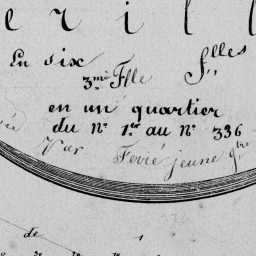 e r i l
En six f.lles
3.me F.lle
en un quartier
du N.o 1.er au N.o 336
Par Ferré jeune g.tre
de 1